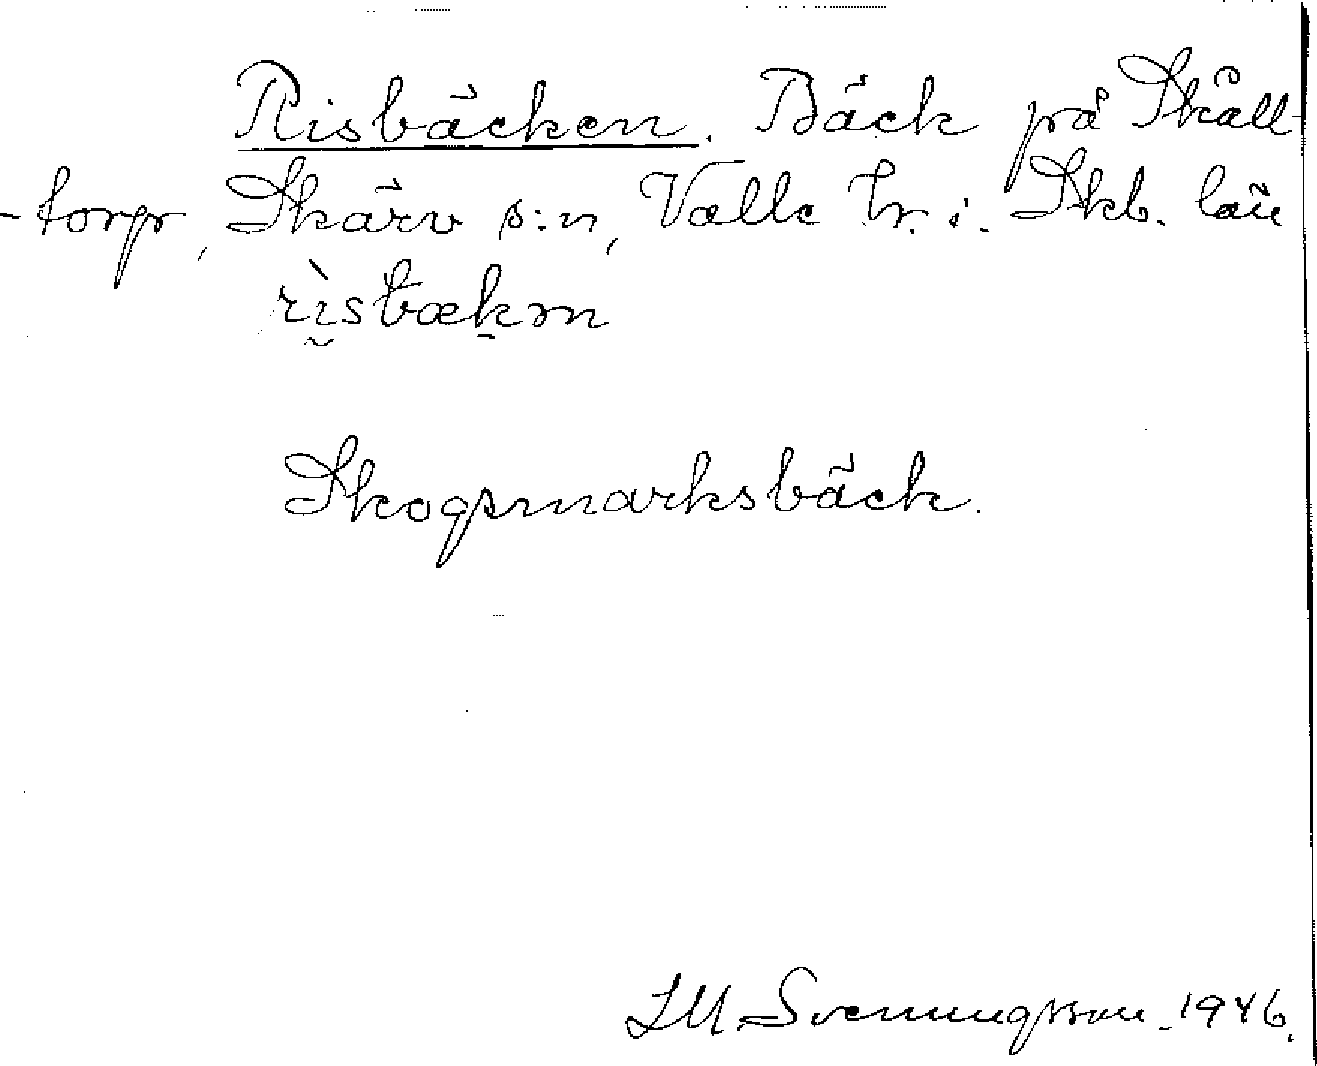 Risbäcken. Bäck på Skåll-
-torp, Skärv s:n, Valle hr. i. Skb. län
rìsbækən
Skogsmarksbäck.
SM. Svenningsson. 1946.